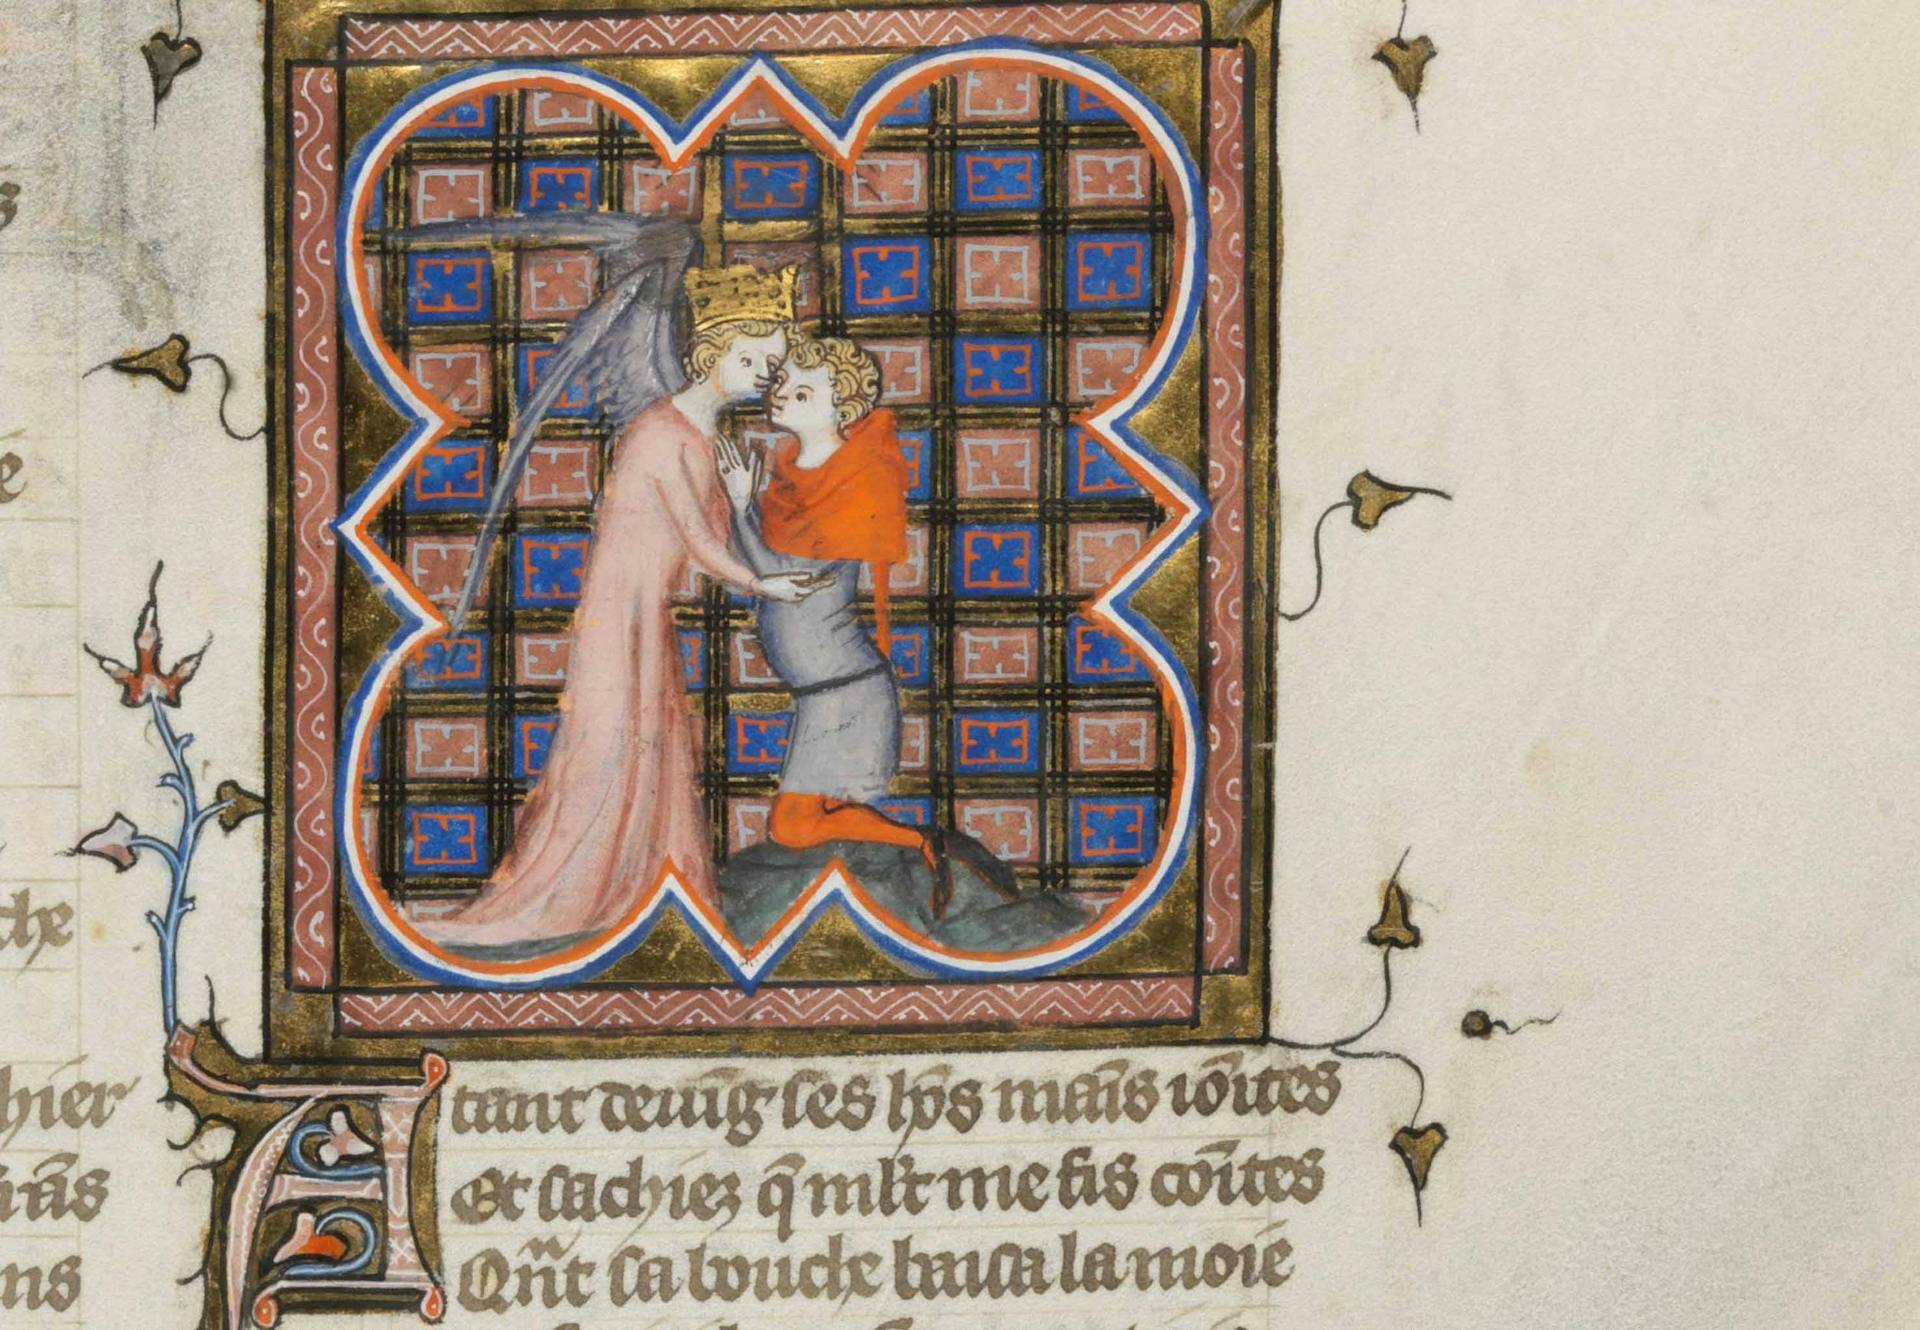 s
e
che
hier
ns
Atant deuīg ses hōs maīs ioītes
Et sachiez q̄ mlt me fis coītes
Qñt sa bouche baisa la moie